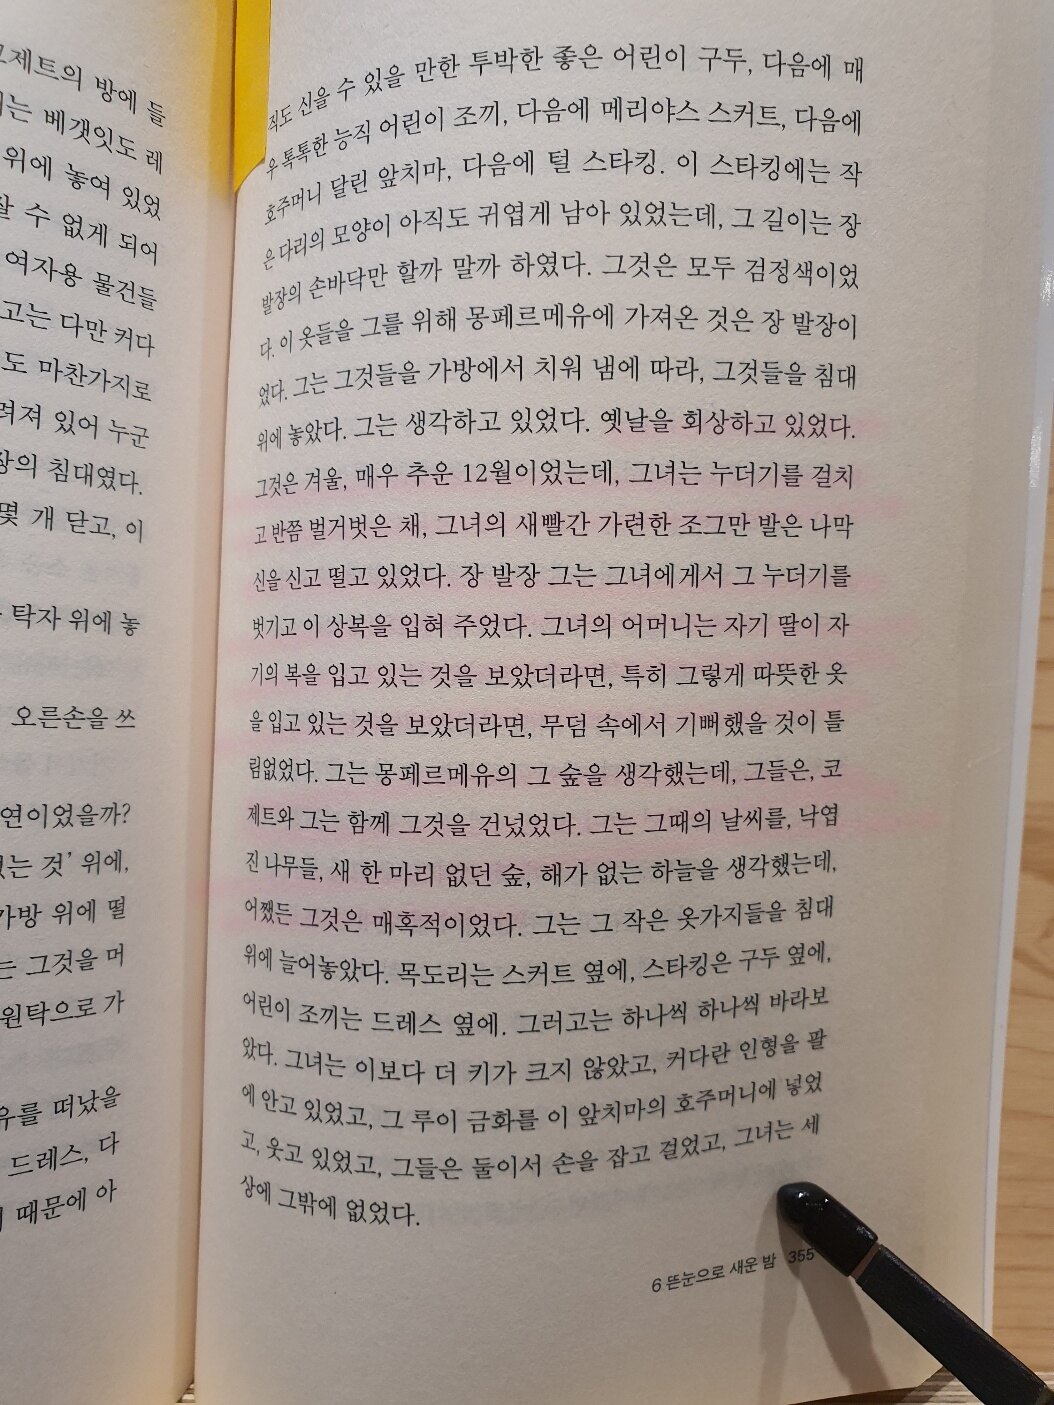 제트의 방에 들
는 베갯잇도 레
위에 놓여 있었
잘 수 없게 되어
여자용 물건들
고는 다만 커다
도 마찬가지로
려져 있어 누군
장의 침대였다.
몇 개 닫고, 이
탁자 위에 놓
오른손을 쓰
연이었을까?
없는 것’ 위에,
가방 위에 떨
는 그것을 머
원탁으로 가
유를 떠났을
드레스, 다
때문에 아
직도 신을 수 있을 만한 투박한 좋은 어린이 구두, 다음에 매
우 톡톡한 능직 어린이 조끼, 다음에 메리야스 스커트, 다음에
호주머니 달린 앞치마, 다음에 털 스타킹. 이 스타킹에는 작
은 다리의 모양이 아직도 귀엽게 남아 있었는데, 그 길이는 장
발장의 손바닥만 할까 말까 하였다. 그것은 모두 검정색이었
다. 이 옷들을 그를 위해 몽페르메유에 가져온 것은 장 발장이
었다. 그는 그것들을 가방에서 치워 냄에 따라, 그것들을 침대
위에 놓았다. 그는 생각하고 있었다. 옛날을 회상하고 있었다.
그것은 겨울, 매우 추운 12월이었는데, 그녀는 누더기를 걸치
고 반쯤 벌거벗은 채, 그녀의 새빨간 가련한 조그만 발은 나막
신을 신고 떨고 있었다. 장 발장 그는 그녀에게서 그 누더기를
벗기고 이 상복을 입혀 주었다. 그녀의 어머니는 자기 딸이 자
기의 복을 입고 있는 것을 보았더라면, 특히 그렇게 따뜻한 옷
을 입고 있는 것을 보았더라면, 무덤 속에서 기뻐했을 것이 틀
림없었다. 그는 몽페르메유의 그 숲을 생각했는데, 그들은, 코
제트와 그는 함께 그것을 건넜었다. 그는 그때의 날씨를, 낙엽
진 나무들, 새 한 마리 없던 숲, 해가 없는 하늘을 생각했는데,
어쨌든 그것은 매혹적이었다. 그는 그 작은 옷가지들을 침대
위에 늘어놓았다. 목도리는 스커트 옆에, 스타킹은 구두 옆에,
어린이 조끼는 드레스 옆에. 그러고는 하나씩 하나씩 바라보
았다. 그녀는 이보다 더 키가 크지 않았고, 커다란 인형을 팔
에 안고 있었고, 그 루이 금화를 이 앞치마의 호주머니에 넣었
고, 웃고 있었고, 그들은 둘이서 손을 잡고 걸었고, 그녀는 세
상에 그밖에 없었다.
6 뜬눈으로 새운 밤 355